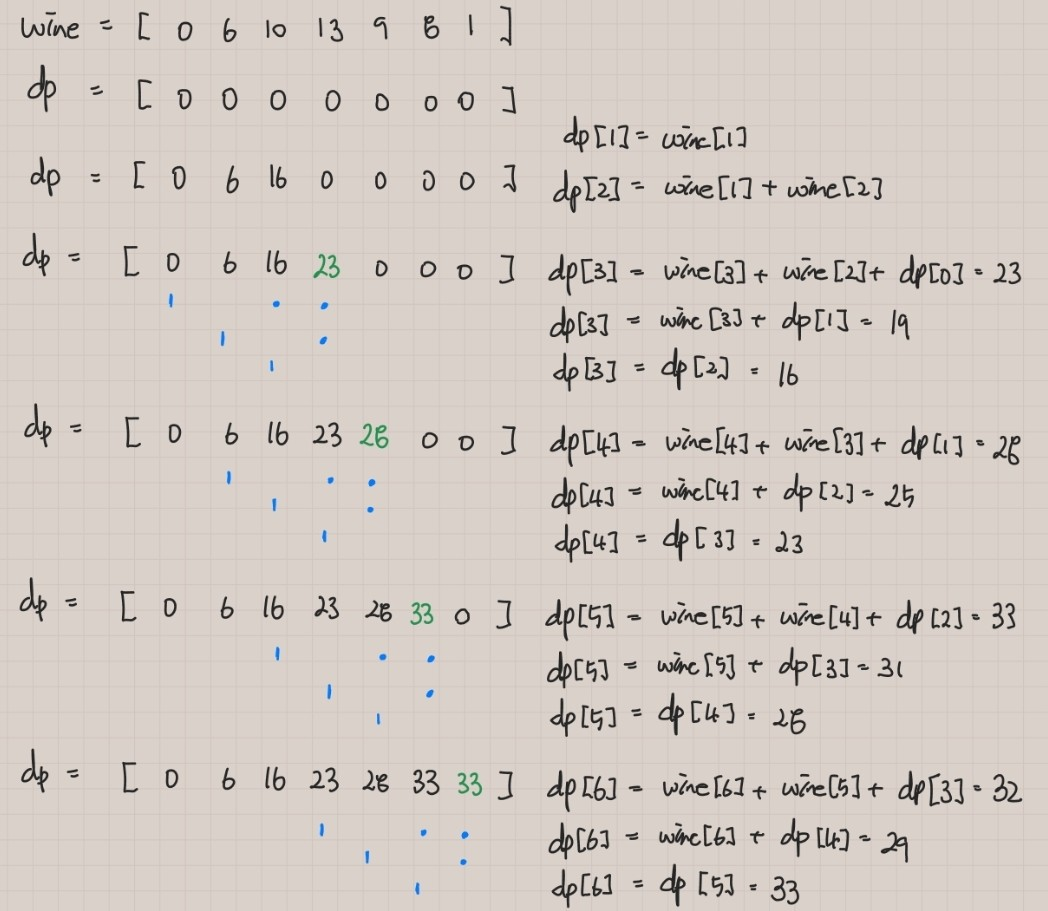 wine = [ 0 6 10 13 9 8 1 ]
dp = [ 0 0 0 0 0 0 0 ]
dp[1] = wine[1]
dp = [ 0 6 16 0 0 0 0 ]
dp[2] = wine[1] + wine[2]
dp = [ 0 6 16 23 0 0 0 ] dp[3] = wine[3] + wine[2] + dp[0] = 23
dp[3] = wine[3] + dp[1] = 19
dp[3] = dp[2] = 16
dp = [ 0 6 16 23 28 0 0 ] dp[4] = wine[4] + wine[3] + dp[1] = 28
dp[4] = wine[4] + dp[2] = 25
dp[4] = dp[3] = 23
dp = [ 0 6 16 23 28 33 0 ] dp[5] = wine[5] + wine[4] + dp[2] = 33
dp[5] = wine[5] + dp[3] = 31
dp[5] = dp[4] = 28
dp = [ 0 6 16 23 28 33 33 ] dp[6] = wine[6] + wine[5] + dp[3] = 32
dp[6] = wine[6] + dp[4] = 29
dp[6] = dp[5] = 33